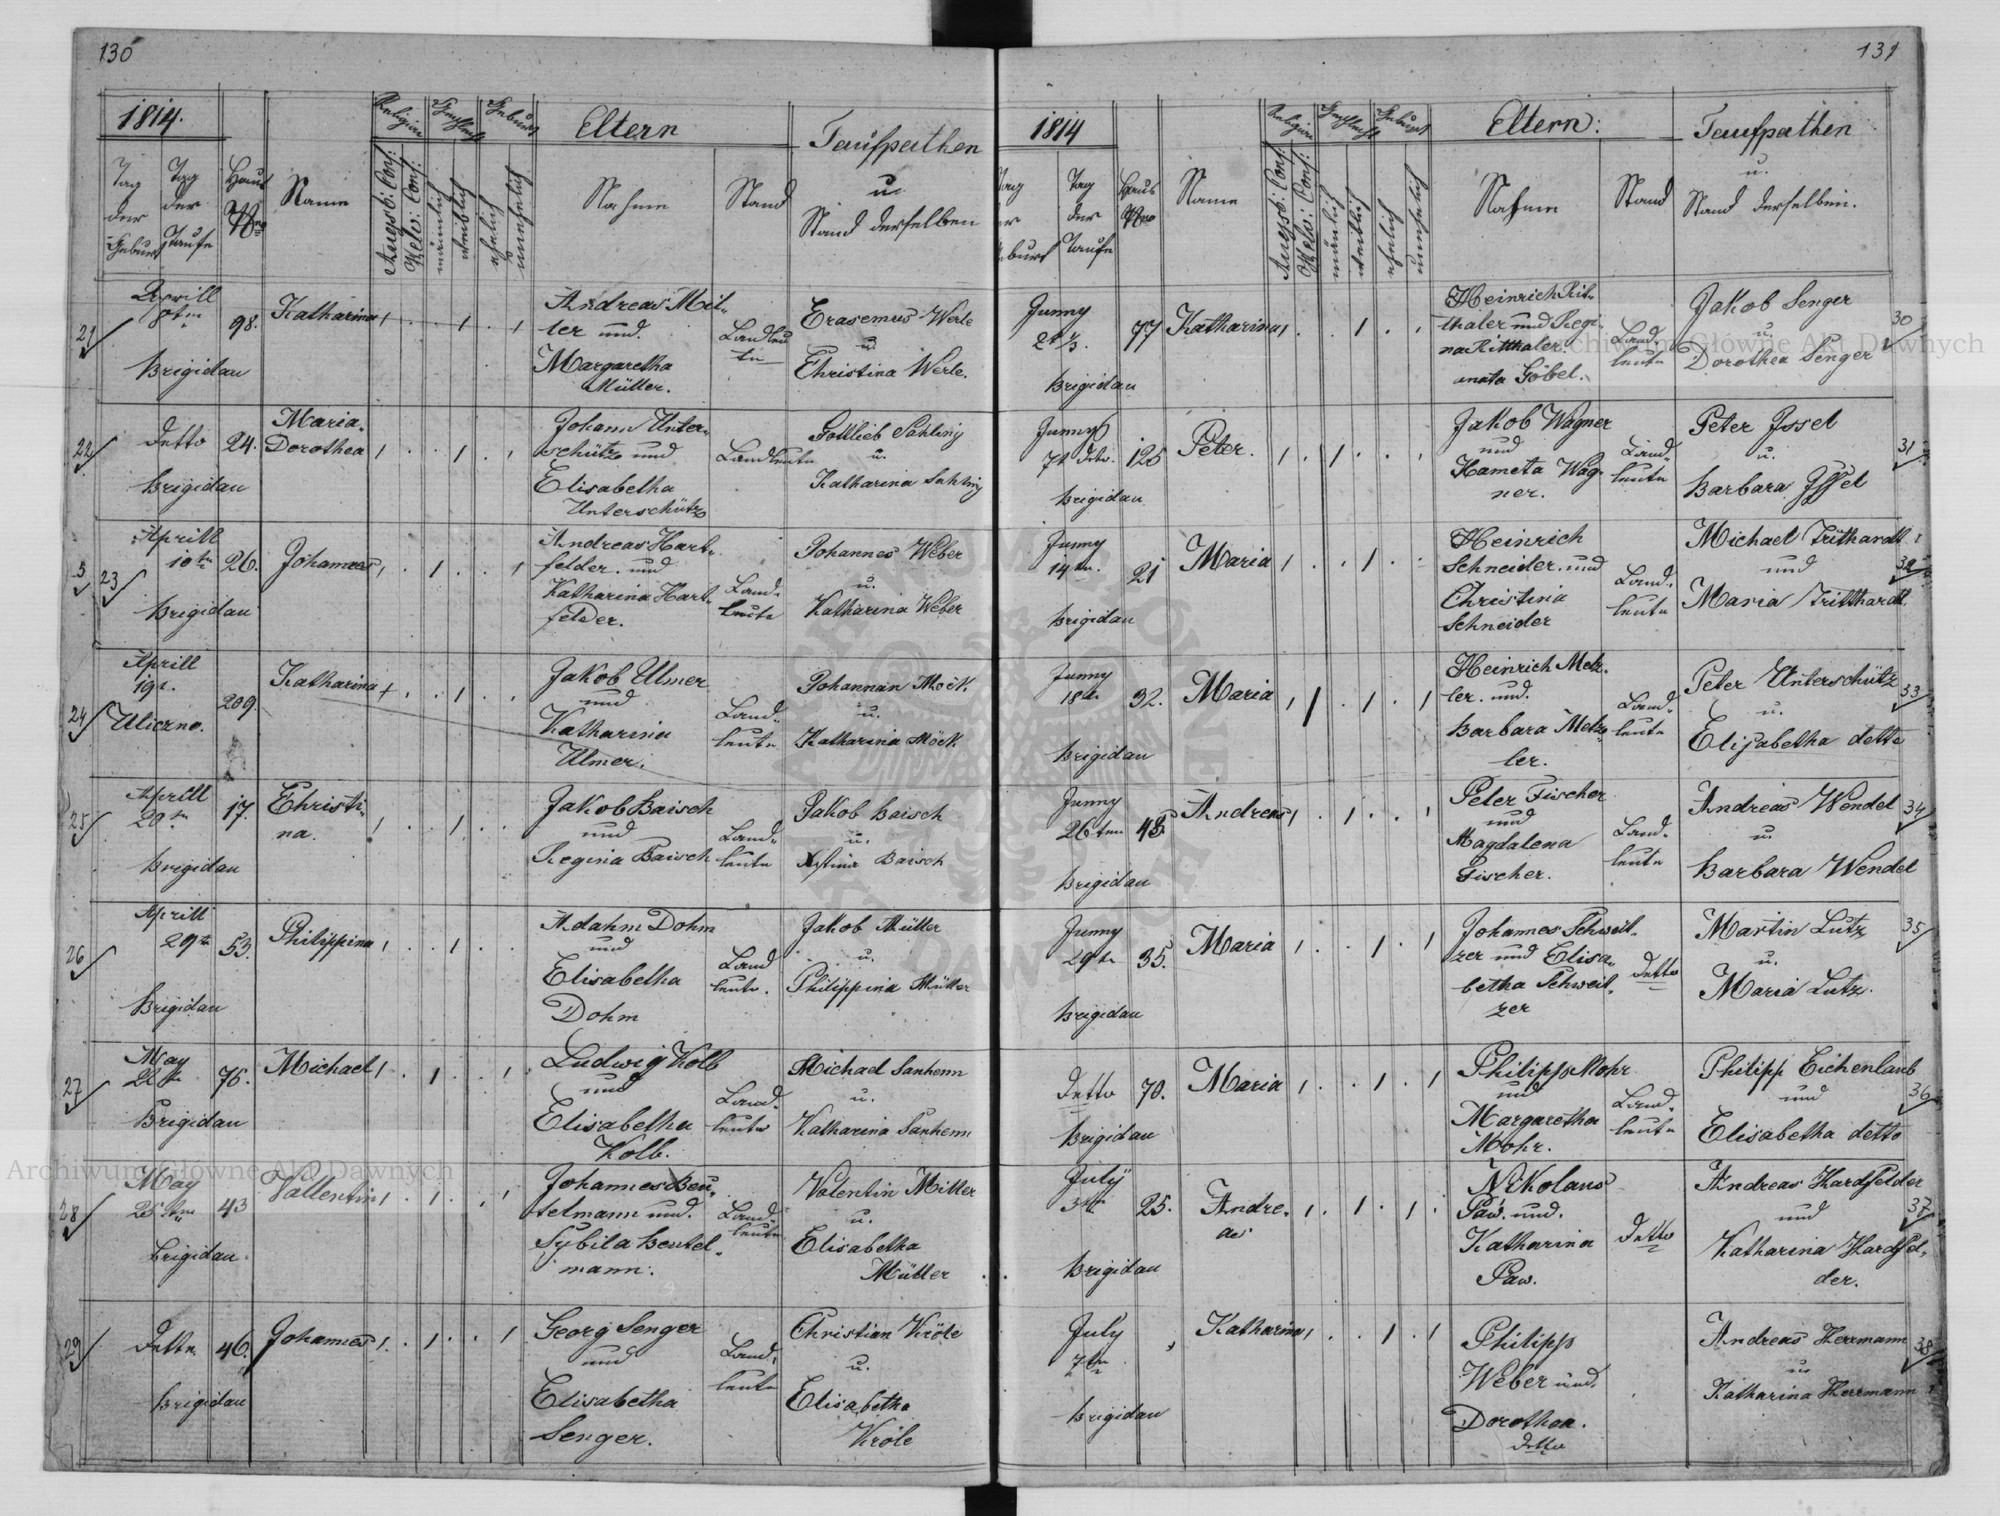 130
1814.
Religion
Geschlecht
Geburt
Eltern
Taufpathen
u.
Stand derselben
Tag
der
Geburt
Tag
der
Taufe
Haus
Nro
Name
Augsb: Conf:
Helv: Conf:
männlich
weiblich
ehelich
unehelich
Nahme
Stand
21
Aprill
8tn
Brigidau
98.
Katharina
Andreas Mil-
ler und
Margaretha
Müller.
Landleu
te
Erasemus Werle
u.
Christina Werle.
22
Detto
Brigidau
24.
Maria
Dorothea
Johann Unter-
schütz und
Elisabetha
Unterschütz
Landleute
Gottlieb Sahling
u.
Katharina Sahling
5
23
Aprill
10tn
Brigidau
26.
Johannes
Andreas Hart-
felder und
Katharina Hart-
felder.
Land-
leute
Johannes Weber
u.
Katharina Weber
24
Aprill
19t.
Uliczno.
209.
Katharina
Jakob Ulmer
und
Katharina
Ulmer.
Land-
leute
Johannan Möck.
u.
Katharina Möck.
25
Aprill
20tn
Brigidau
17.
Christi-
na.
Jakob Baisch
und
Regina Baisch
Land-
leute
Jakob Baisch
u.
Baisch
26
Aprill
29tn
Brigidau
53.
Philippina
Adahm Dohm
und
Elisabetha
Dohm
Land
leute.
Jakob Müller
u.
Philippina Müller
27
May
Brigidau
76.
Michael
Ludwig Kolb
und
Elisabetha
Kolb.
Land-
leute
Michael Sanhenn
u.
Katharina Sanhenn
28
May
25tn
Brigidau.
43
Vallentin
Johannes Beu-
telmann und.
Sybila Beutel-
mann.
Land-
leute
Valentin Miller
u.
Elisabetha
Müller
29
Detto
Brigidau
46.
Johannes
Georg Senger
und
Elisabetha
Senger.
Land-
leute
Christian Kröle
u.
Elisabetha
Kröle
131
1814
Religion
Geschlecht
Geburt
Eltern:
Taufpathen
u.
Stand derselben.
Tag
der
Taufe
Haus
Nro
Name
Augsb: Conf:
Helv: Conf:
männlich
weiblich
ehelich
unehelich
Nahme
Stand
Junny
Brigidau
77
Katharina
Heinrich Rit-
thaler und Regi-
na Ritthaler.
Göbel.
Land-
leute
Jakob Senger
u.
Dorothea Senger
30
Junny
7t
Brigidau
125
Peter.
Jakob Wagner
und
Hameta Wag-
ner.
Land-
leute
Peter Issel
u.
Barbara Issel
31
Junny
14tn.
Brigidau
21
Maria
Heinrich
Schneider und
Christina
Schneider
Land-
leute
Michael Tritthardt
und
Maria Tritthardt.
32
Junny
18tn
Brigidau
32.
Maria
Heinrich Metz-
ler. und.
Barbara Metz-
ler.
Land-
leute
Peter Unterschütz
u.
Elisabetha detto
33
Junny
26ten
Brigidau
Andreas
Peter Fischer
und
Magdalena
Fischer.
Land-
leute
Andreas Wendel
u.
Barbara Wendel
34
Junny
29tn
Brigidau
35.
Maria
Johannes Schweit-
zer und Elisa-
betha Schweit-
zer
Detto
Martin Lutz
u.
Maria Lutz.
35
Detto
Brigidau
70.
Maria
Philipp Mohr
und
Margaretha
Mohr.
Land-
leute
Philipp Eichenlaub
und
Elisabetha detto
36
July
3tn
Brigidau
25.
Andre-
as
Nikolaus
Paw. und.
Katharina
Paw.
Detto
Andreas Hardfelder
und
Katharina Hardfel-
der.
37
July
7tn
Brigidau
Katharina
Philipp
Weber und
Dorothea.
detto
Andreas Herrmann
u.
Katharina Herrmann
38
Archiwum Główne Akt Dawnych
Archiwum Główne Akt Dawnych